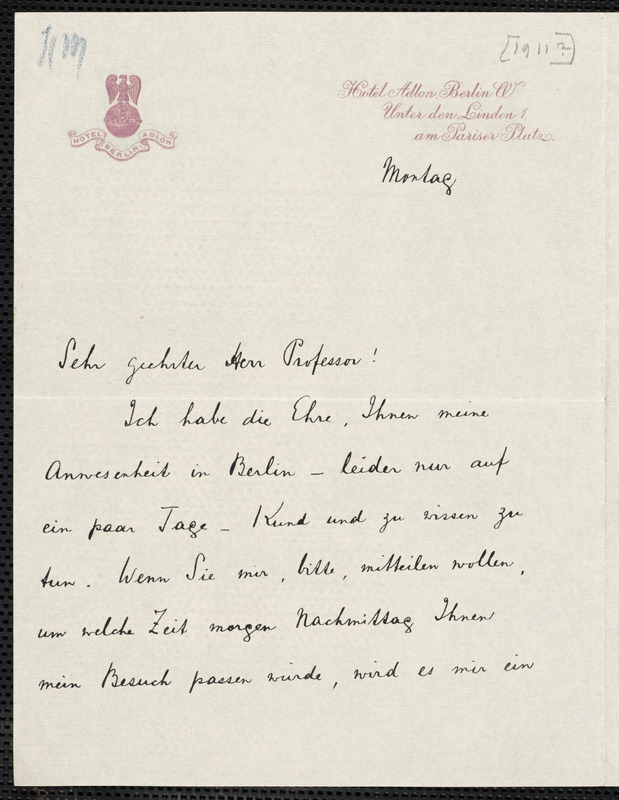 [1911?]
HOTEL ADLON
BERLIN
Hotel Adlon, Berlin W
Unter den Linden 1,
am Pariser Platz.
Montag
Sehr geehrter Herr Professor!
Ich habe die Ehre, Ihnen meine
Anwesenheit in Berlin – leider nur auf
ein paar Tage – Kund und zu wissen zu
tun. Wenn Sie mir, bitte, mitteilen wollen,
um welche Zeit morgen Nachmittag Ihnen
mein Besuch passen würde, wird es mir ein